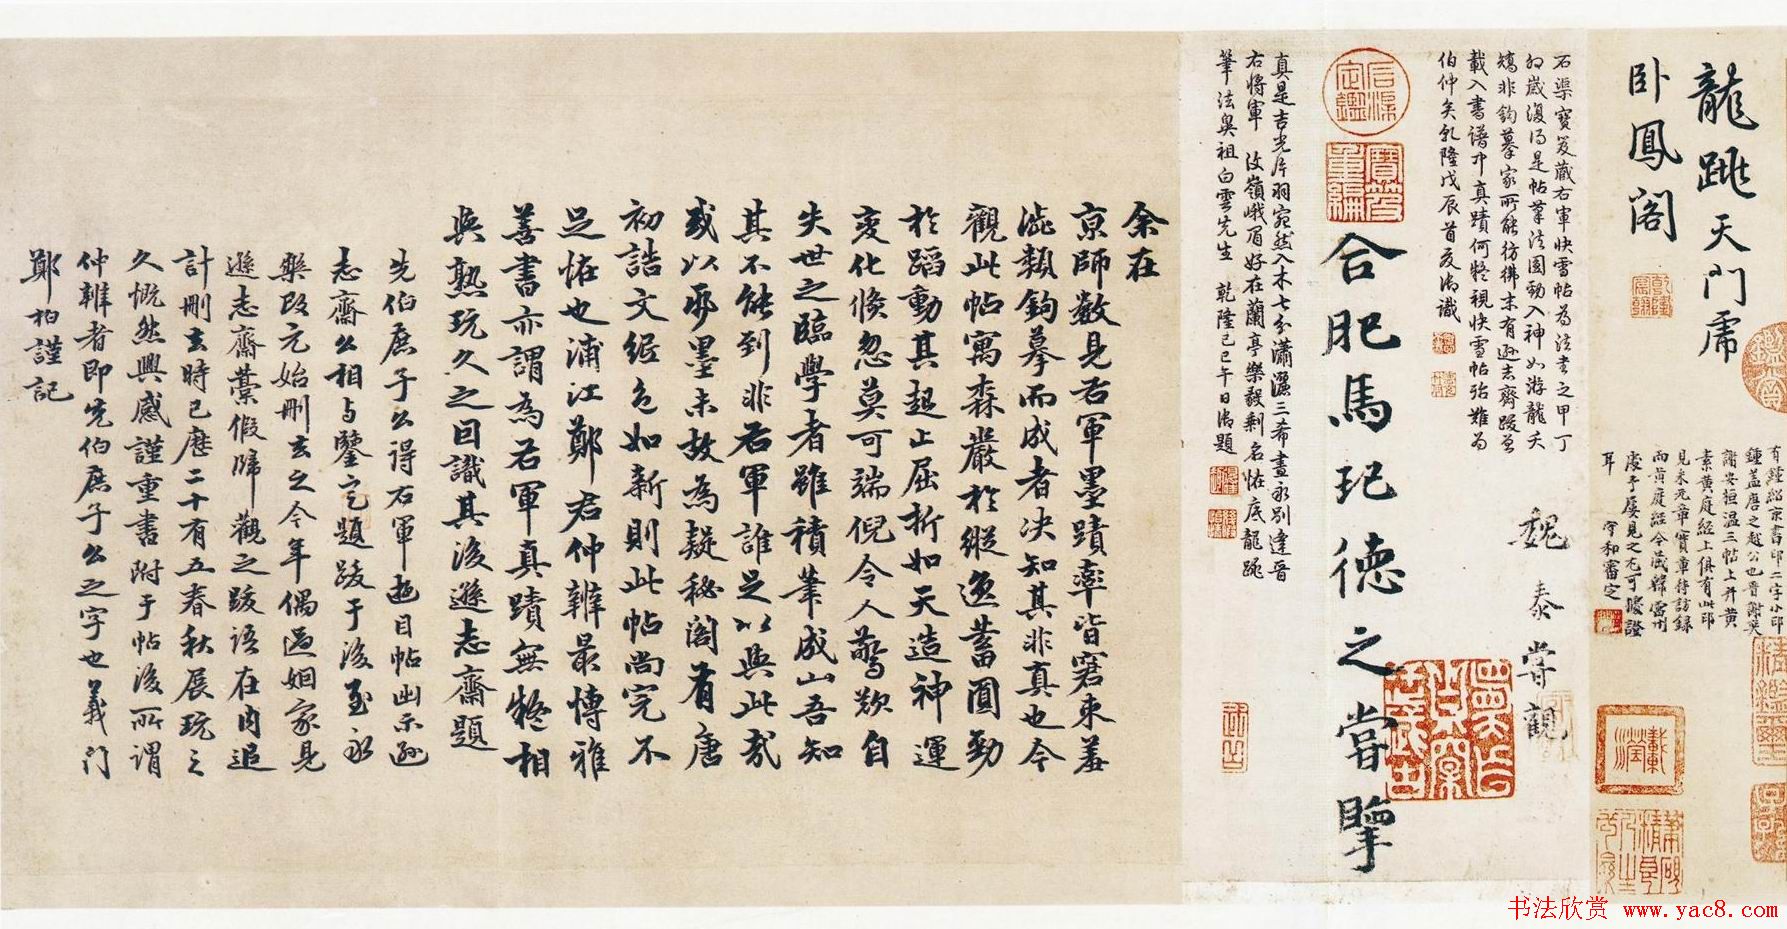 龍跳天門虎
卧鳳閣
有鍾紹京書印二字小印
鍾蓋唐之越公也晉謝奕
謝安桓温三帖上并黄
素黄庭經上俱有此印
見米元章寶章待訪録
而黄庭經今藏韓宗伯
處予屡見之尤可騐證
耳　守和審定
石渠寶笈藏右軍快雪帖為法書之甲丁
卯歳復得是帖筆法圓勁入神如游龍夭
矯非鈎摹家所能彷彿末有遜志齋跋曾
載入書譜中真蹟何疑視快雪帖殆難為
伯仲矣乾隆戊辰首夏御識
魏泰嘗觀
合肥馬玘德之嘗擥
真是吉光片羽宛然入木七分瀟灑三希畫永別逢晉
右將軍　汶嶺峨眉好在蘭亭樂毅剩名恠底龍跳
筆法奥祖白雲先生　乾隆己巳午日御題
余在
京師數見右軍墨蹟率皆窘束羞
澁類鈎摹而成者决知其非真也今
觀此帖寓森嚴於縱逸蓄圓勁
於蹈動其起止屈折如天造神運
变化倐忽莫可端倪令人驚歎自
失世之臨學者雖積筆成山吾知
其不能到非右軍誰足以與此哉
或以飛墨未故為疑秘閣有唐
初誥文紙色如新則此帖尚完不
足恠也浦江鄭君仲辨最博雅
善書亦謂為右軍真蹟無疑相
與熟玩久之因識其後遜志齋題
先伯庶子公得右軍遊目帖出示遜
志齋公相与鑒定題跋于後至永
樂改元始刪去之今年偶過姻家見
遜志齋藁假歸觀之跋語在内追
計刪去時已歴二十有五春秋展玩之
久慨然興感謹重書附于帖後所謂
仲辨者即先伯庶子公之字也義門
鄭柏謹記
书法欣赏 www.yac8.com